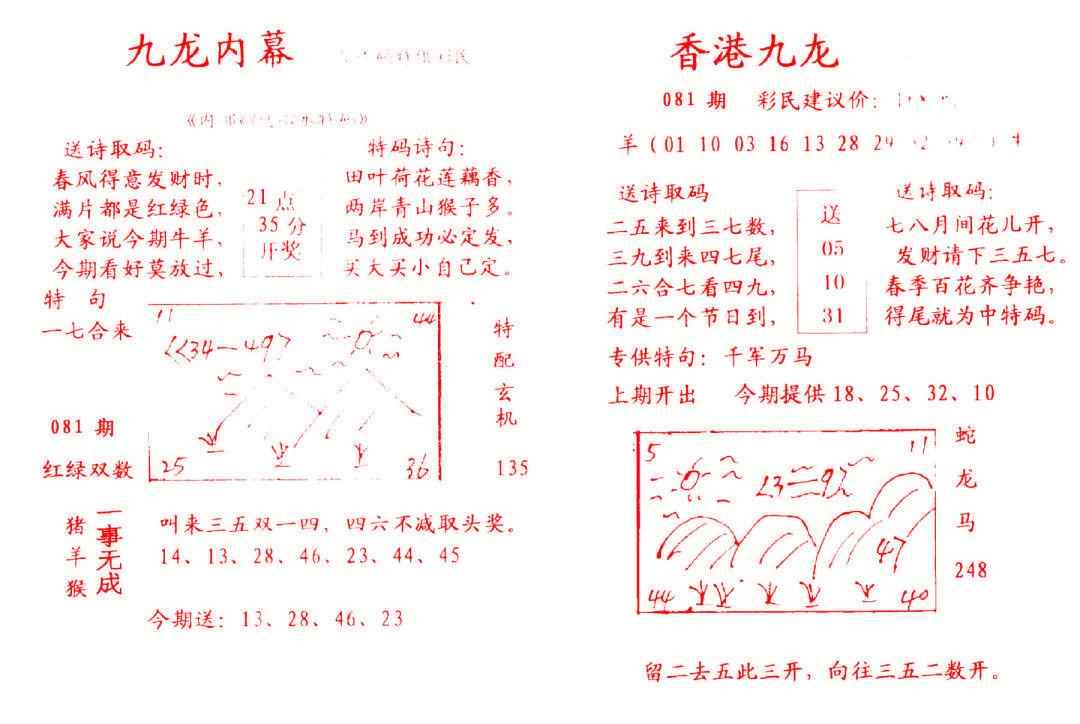 九龙内幕
送诗取码:
春风得意发财时,
满片都是红绿色,
大家说今期牛羊,
今期看好莫放过,
21点
35分
开奖
特码诗句:
田叶荷花莲藕香,
两岸青山猴子多。
马到成功必定发,
买大买小自己定。
特句
一七合来
081期
红绿双数
11
44
34—49
25
36
特配玄机
135
猪
羊
猴
一事无成
叫来三五双一四,四六不减取头奖。
14、13、28、46、23、44、45
今期送:13、28、46、23
香港九龙
081期 彩民建议价:
羊(01 10 03 16 13 28 29
送诗取码
二五来到三七数,
三九到来四七尾,
二六合七看四九,
有是一个节日到,
送
05
10
31
送诗取码:
七八月间花儿开,
发财请下三五七。
春季百花齐争艳,
得尾就为中特码。
专供特句:千军万马
上期开出 今期提供18、25、32、10
5
11
47
44
40
蛇
龙
马
248
留二去五此三开,向往三五二数开。